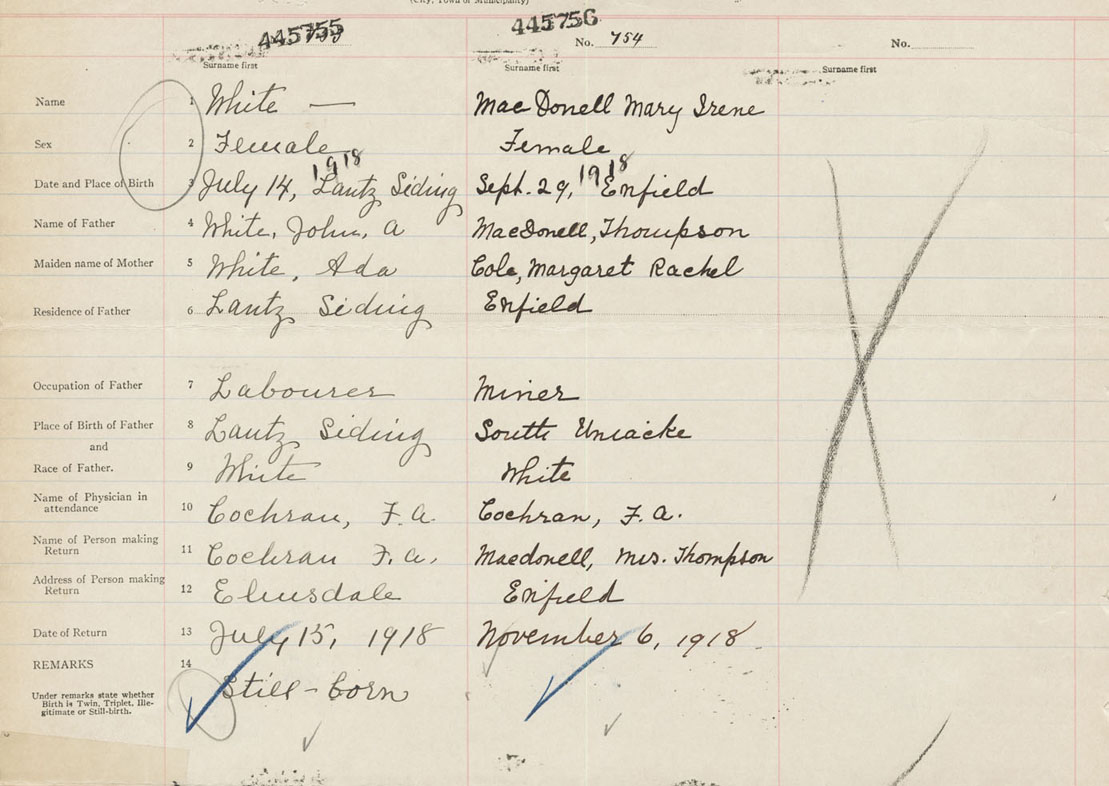 (City, Town or Municipality)
445755 445756
No. 754 No.
Surname first Surname first Surname first
Name 1 White — Mac Donell Mary Irene
Sex 2 Female Female
1918 1918
Date and Place of Birth 3 July 14, Lantz Siding Sept. 29, Enfield
Name of Father 4 White, John, A MacDonell, Thompson
Maiden name of Mother 5 White, Ada Cole, Margaret Rachel
Residence of Father 6 Lantz Siding Enfield
Occupation of Father 7 Labourer Miner
Place of Birth of Father 8 Lantz Siding South Uniacke
and
Race of Father. 9 White White
Name of Physician in
attendance 10 Cochran, F.A. Cochran, F.A.
Name of Person making
Return 11 Cochran F.A. Macdonell, Mrs. Thompson
Address of Person making
Return 12 Elmsdale Enfield
Date of Return 13 July 15, 1918 November 6, 1918
REMARKS 14
Still-born
Under remarks state whether
Birth is Twin, Triplet, Ille-
gitimate or Still-birth.